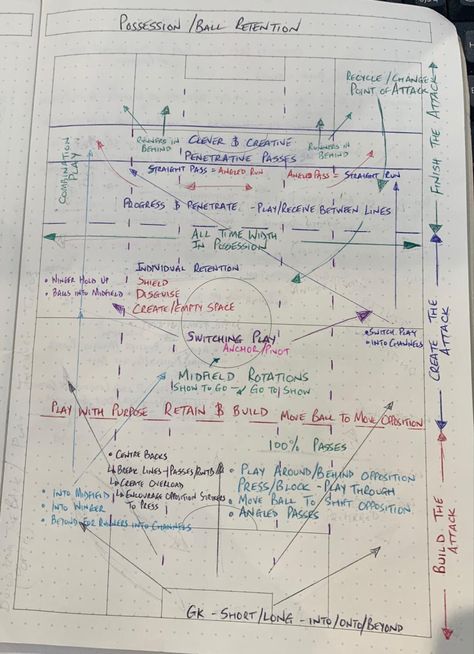 POSSESSION/BALL RETENTION
RECYCLE/CHANGE
POINT OF ATTACK
RUNNERS IN
BEHIND
RUNNERS IN
BEHIND
CLEVER & CREATIVE
PENETRATIVE PASSES
STRAIGHT PASS = ANGLED RUN
ANGLED PASS = STRAIGHT RUN
COMBINATION
PLAY
FINISH THE ATTACK
PROGRESS & PENETRATE - PLAY/RECEIVE BETWEEN LINES
ALL TIME WIDTH
IN POSSESSION
INDIVIDUAL RETENTION
• WINGER HOLD UP
SHIELD
• BALLS INTO MIDFIELD
DISGUISE
CREATE/EMPTY SPACE
SWITCHING PLAY
ANCHOR/PIVOT
• SWITCH PLAY
• INTO CHANNELS
CREATE THE
ATTACK
MIDFIELD ROTATIONS
SHOW TO GO GO TO SHOW
PLAY WITH PURPOSE RETAIN & BUILD MOVE BALL TO MOVE OPPOSITION
100% PASSES
• CENTRE BACKS
BREAK LINES - PASSES/
CREATE OVERLOAD
ENCOURAGE OPPOSITION STRIKERS
TO PRESS
• PLAY AROUND/BEHIND OPPOSITION
PRESS/BLOCK - PLAY THROUGH
• MOVE BALL TO SHIFT OPPOSITION
• ANGLED PASSES
• INTO MIDFIELD
• INTO WINGER
• BEYOND FOR RUNNERS INTO CHANNELS
BUILD THE
ATTACK
GK - SHORT/LONG - INTO/ONTO/BEYOND